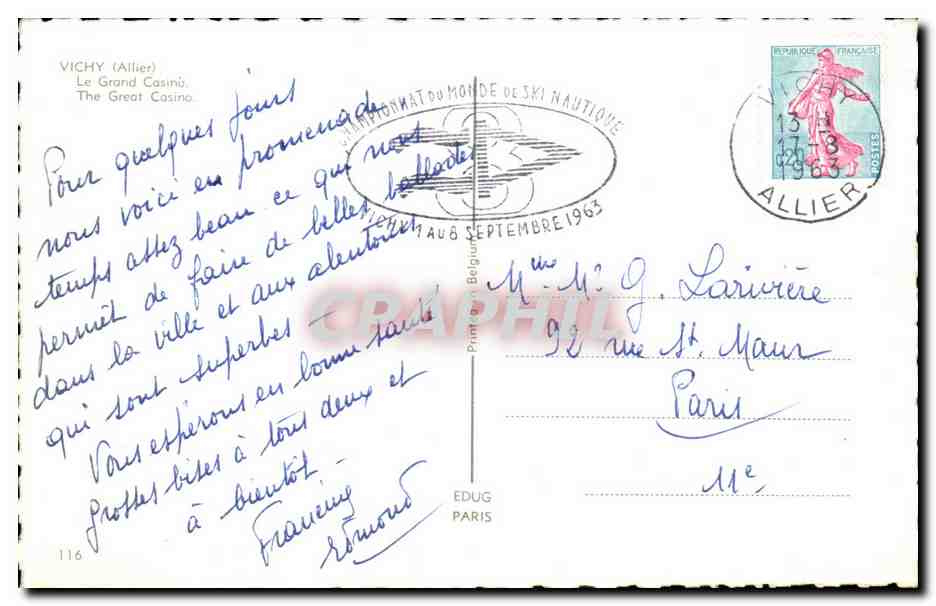 VICHY (Allier)
Le Grand Casino.
The Great Casino.
Pour quelques jours
nous voici en promenade,
temps assez beau ce qui nous
permêt de faire de belles ballades
dans la ville et aux alentours
qui sont superbes -
Vous espérons en bonne santé
grosses bises à tous deux et
à bientôt -
Francine
Edmond
116
CHAMPIONNAT DU MONDE DE SKI NAUTIQUE
VICHY 1 AU 8 SEPTEMBRE 1963
REPUBLIQUE FRANÇAISE
POSTES
0,20
VICHY
13 H
17-8
1963
ALLIER
Printed in Belgium
CRAPHIL
Mme Mr G. Larivière
92 rue St. Maur
Paris
11e
EDUG
PARIS